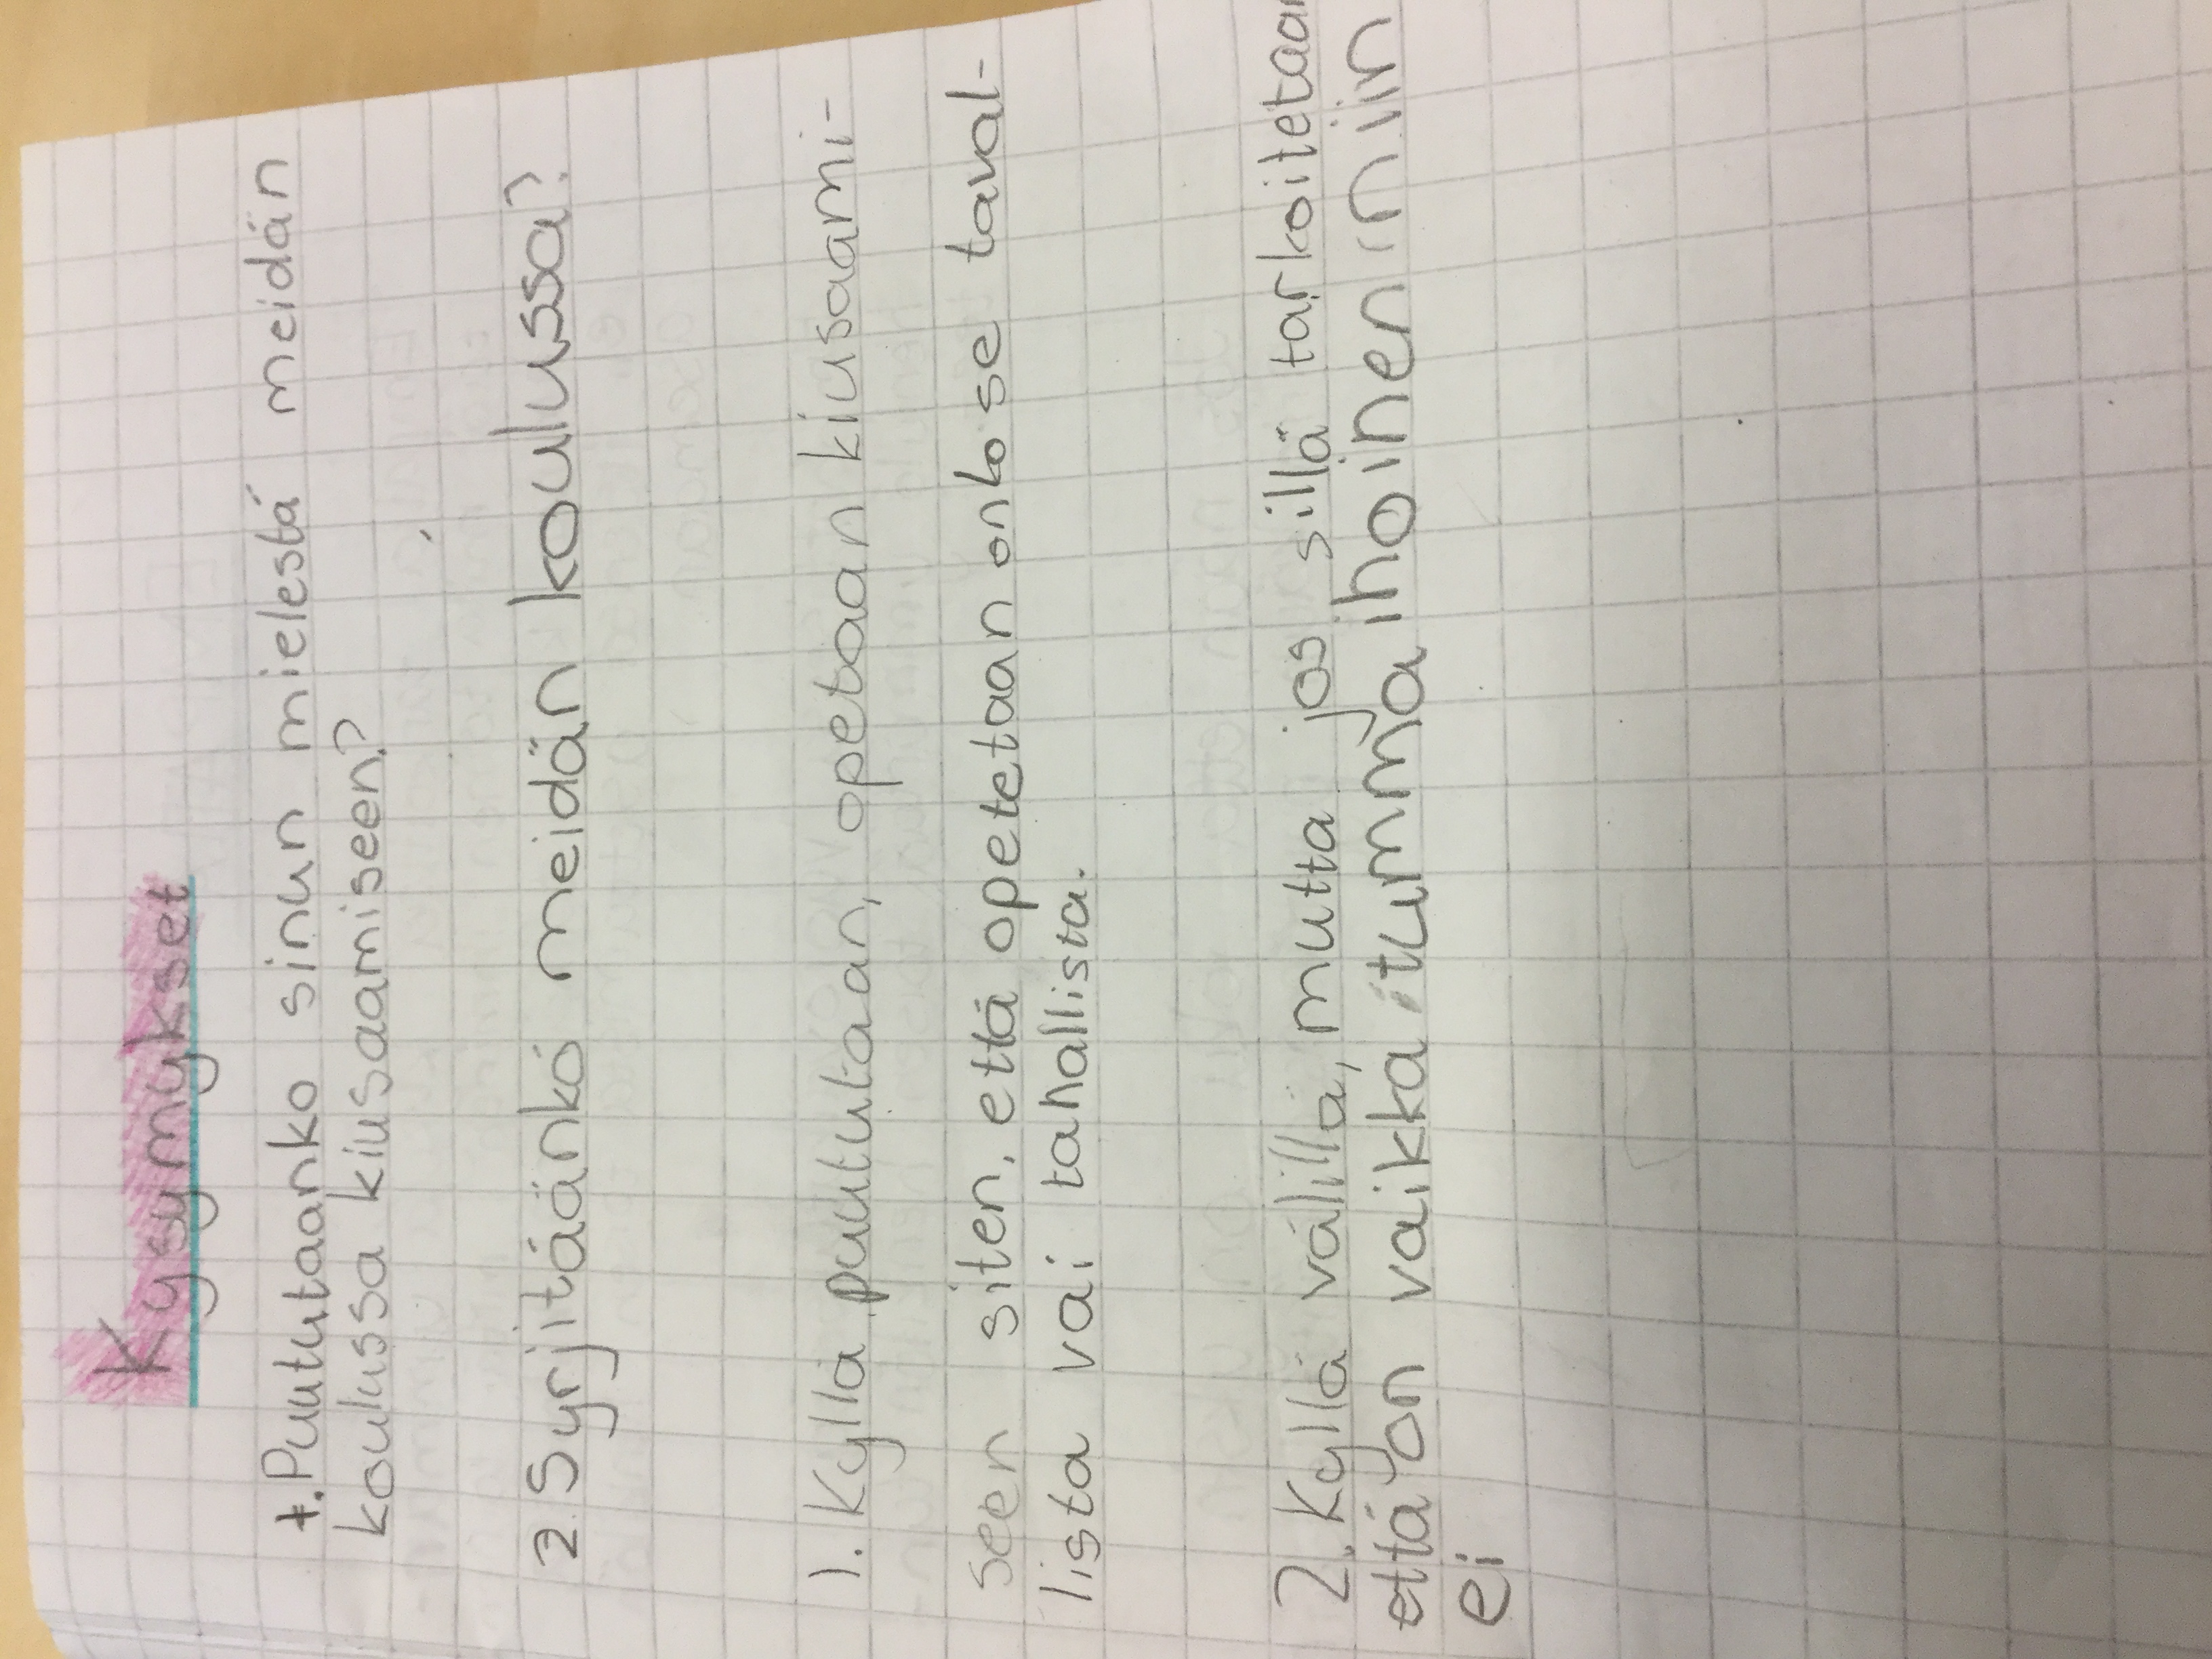 Kysymykset
1. Puututaanko sinun mielestä meidän
koulussa kiusaamiseen?
2. Syrjitäänkö meidän koulussa?
1. Kyllä puututaan, opetaan kiusaami-
seen siten, että opetetaan onko se taval-
lista vai tahallista.
2. Kyllä välillä, mutta jos sillä tarkoitetaan
että on vaikka tumma ihoinen niin
ei